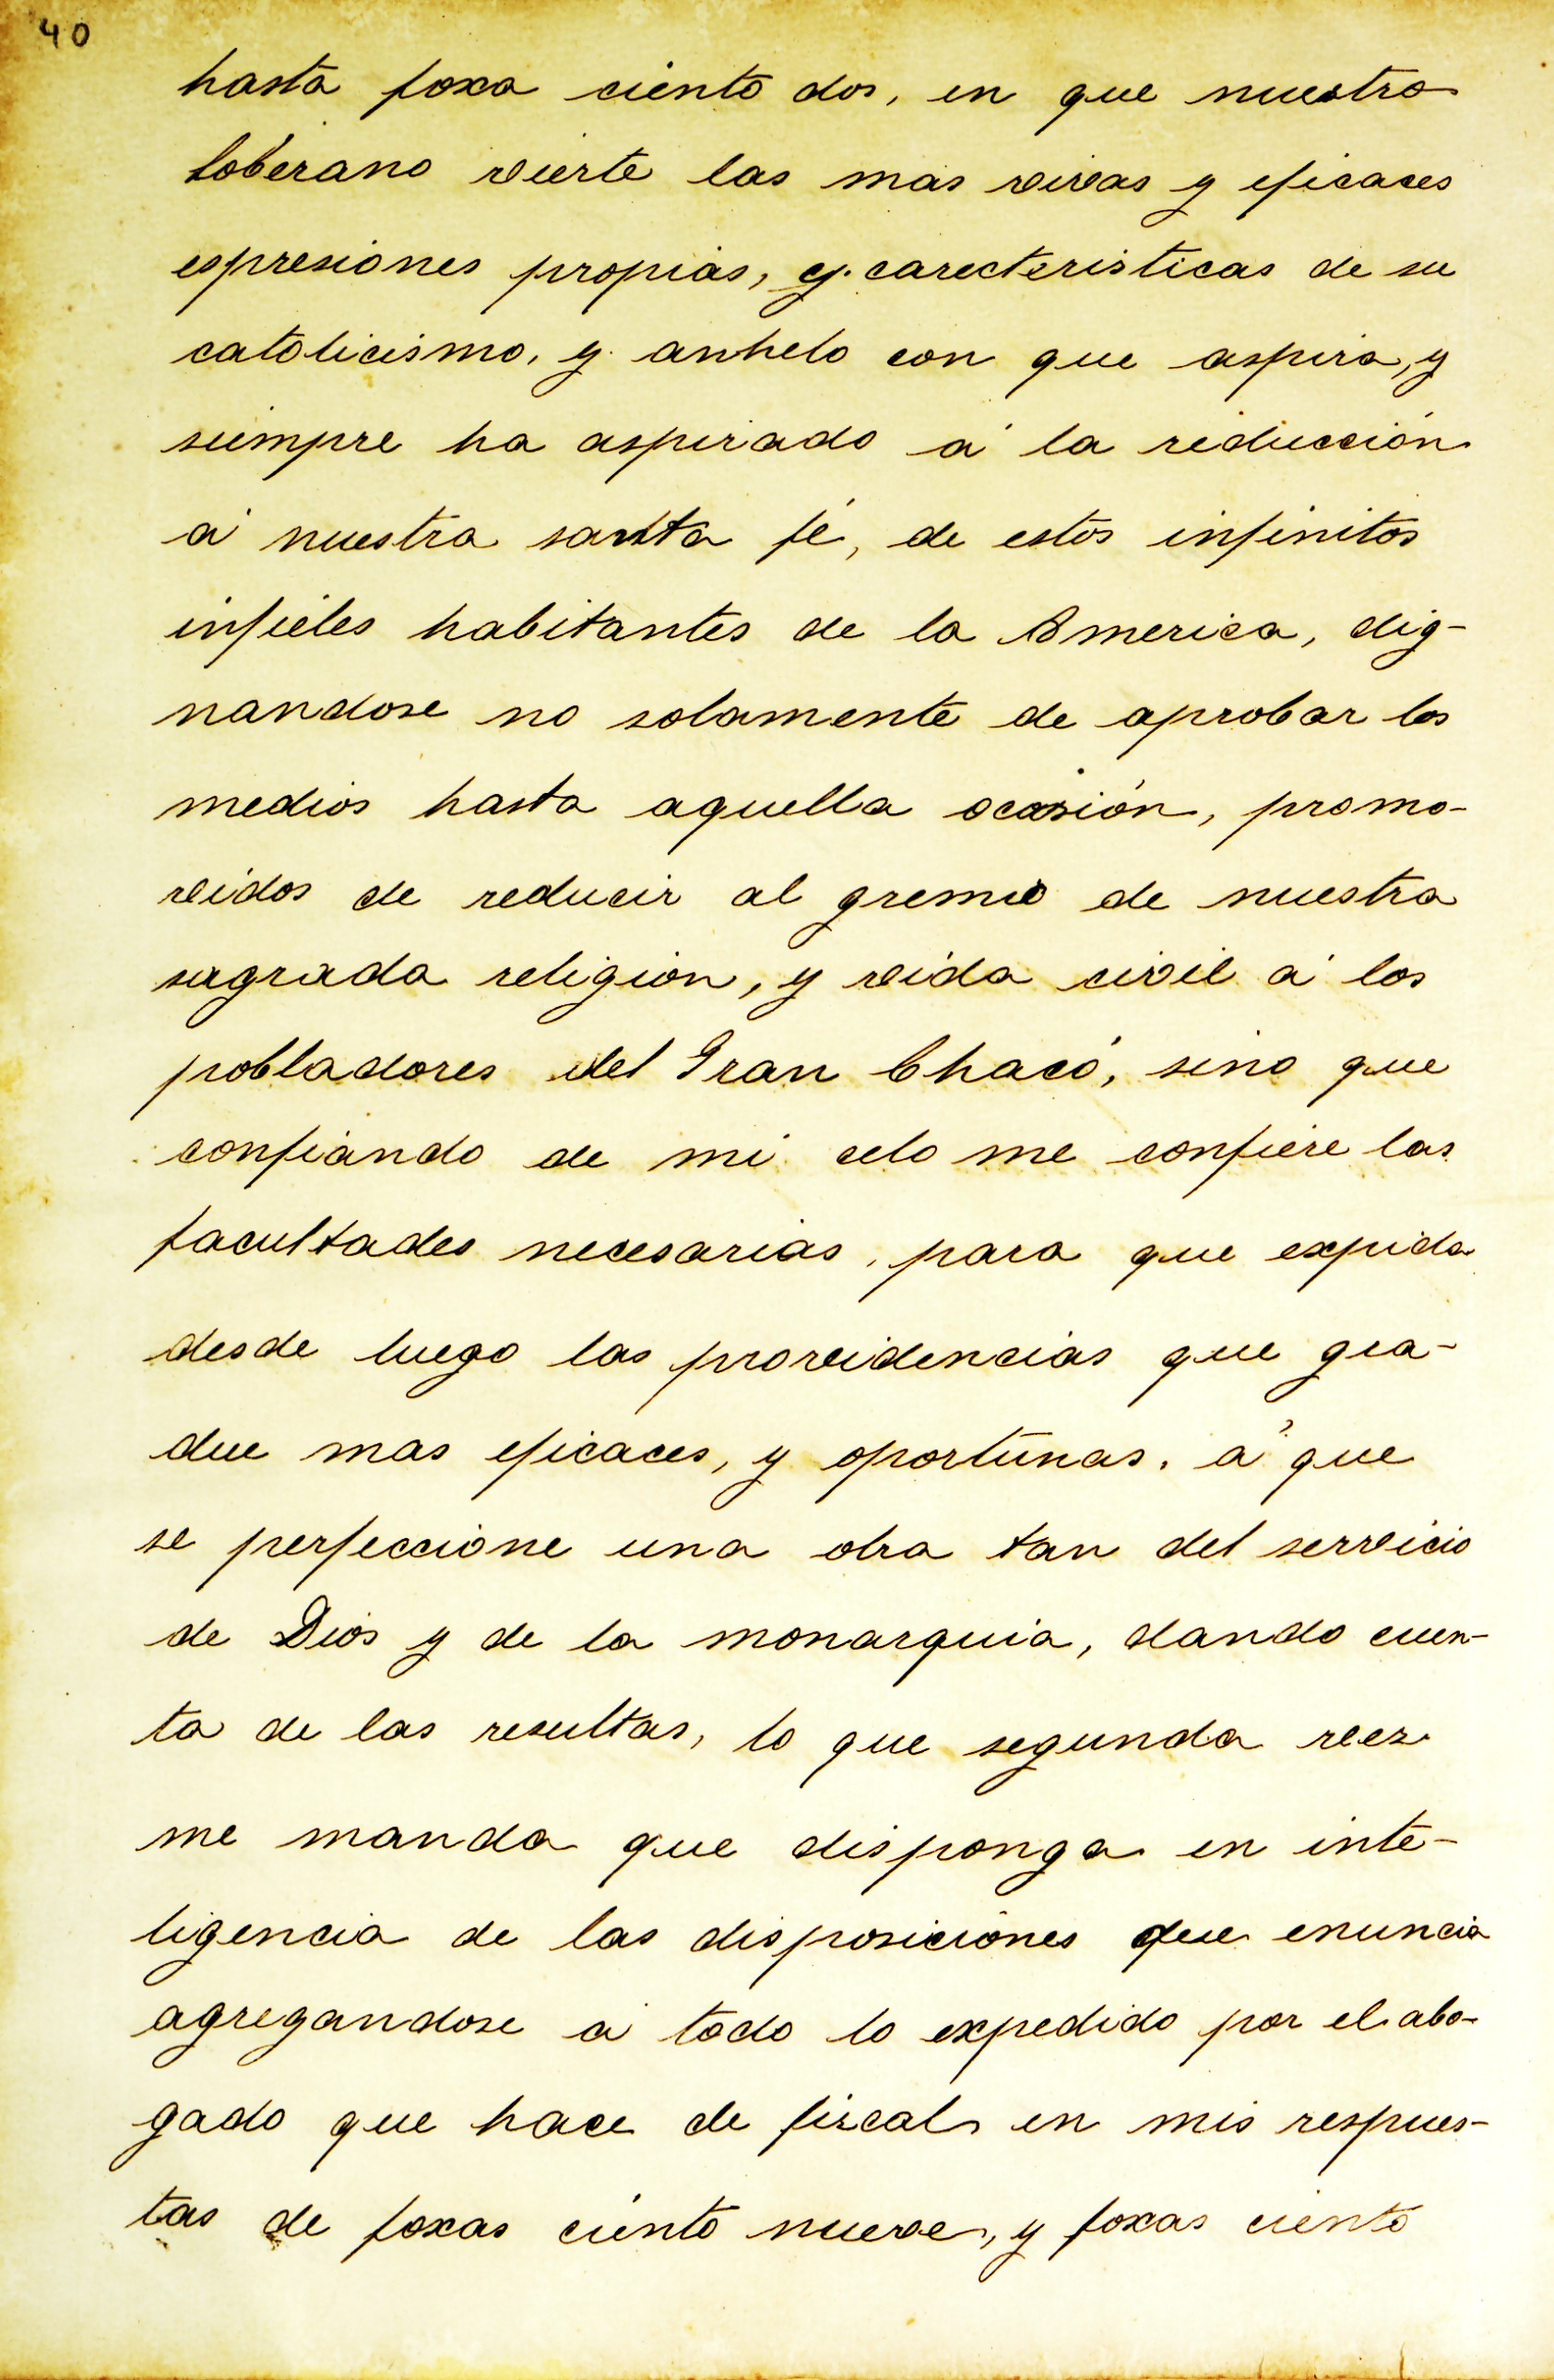 40
hasta foxa ciento dos, en que nuestro
soberano vierte las mas vivas y eficaces
espresiones propias, y carecteristicas de su
catolicismo, y anhelo con que aspira, y
siempre ha aspirado á la reducción
á nuestra santa fé, de estos infinitos
infieles habitantes de la America, dig-
nandose no solamente de aprobar los
medios hasta aquella ocasión, promo-
vidos de reducir al gremio de nuestra
sagrada religion, y vida civil á los
pobladores del Gran Chaco, sino que
confiando de mi celo me confiere las
facultades necesarias, para que expida
desde luego las providencias que gra-
due mas eficaces, y oportunas, á que
se perfeccione una obra tan del servicio
de Dios y de la monarquia, dando cuen-
ta de las resultas, lo que segunda vez
me manda que disponga en inte-
ligencia de las disposiciones que enuncia
agregandose á todo lo expedido por el abo-
gado que hace de fiscal en mis respues-
tas de foxas ciento nueve, y foxas ciento